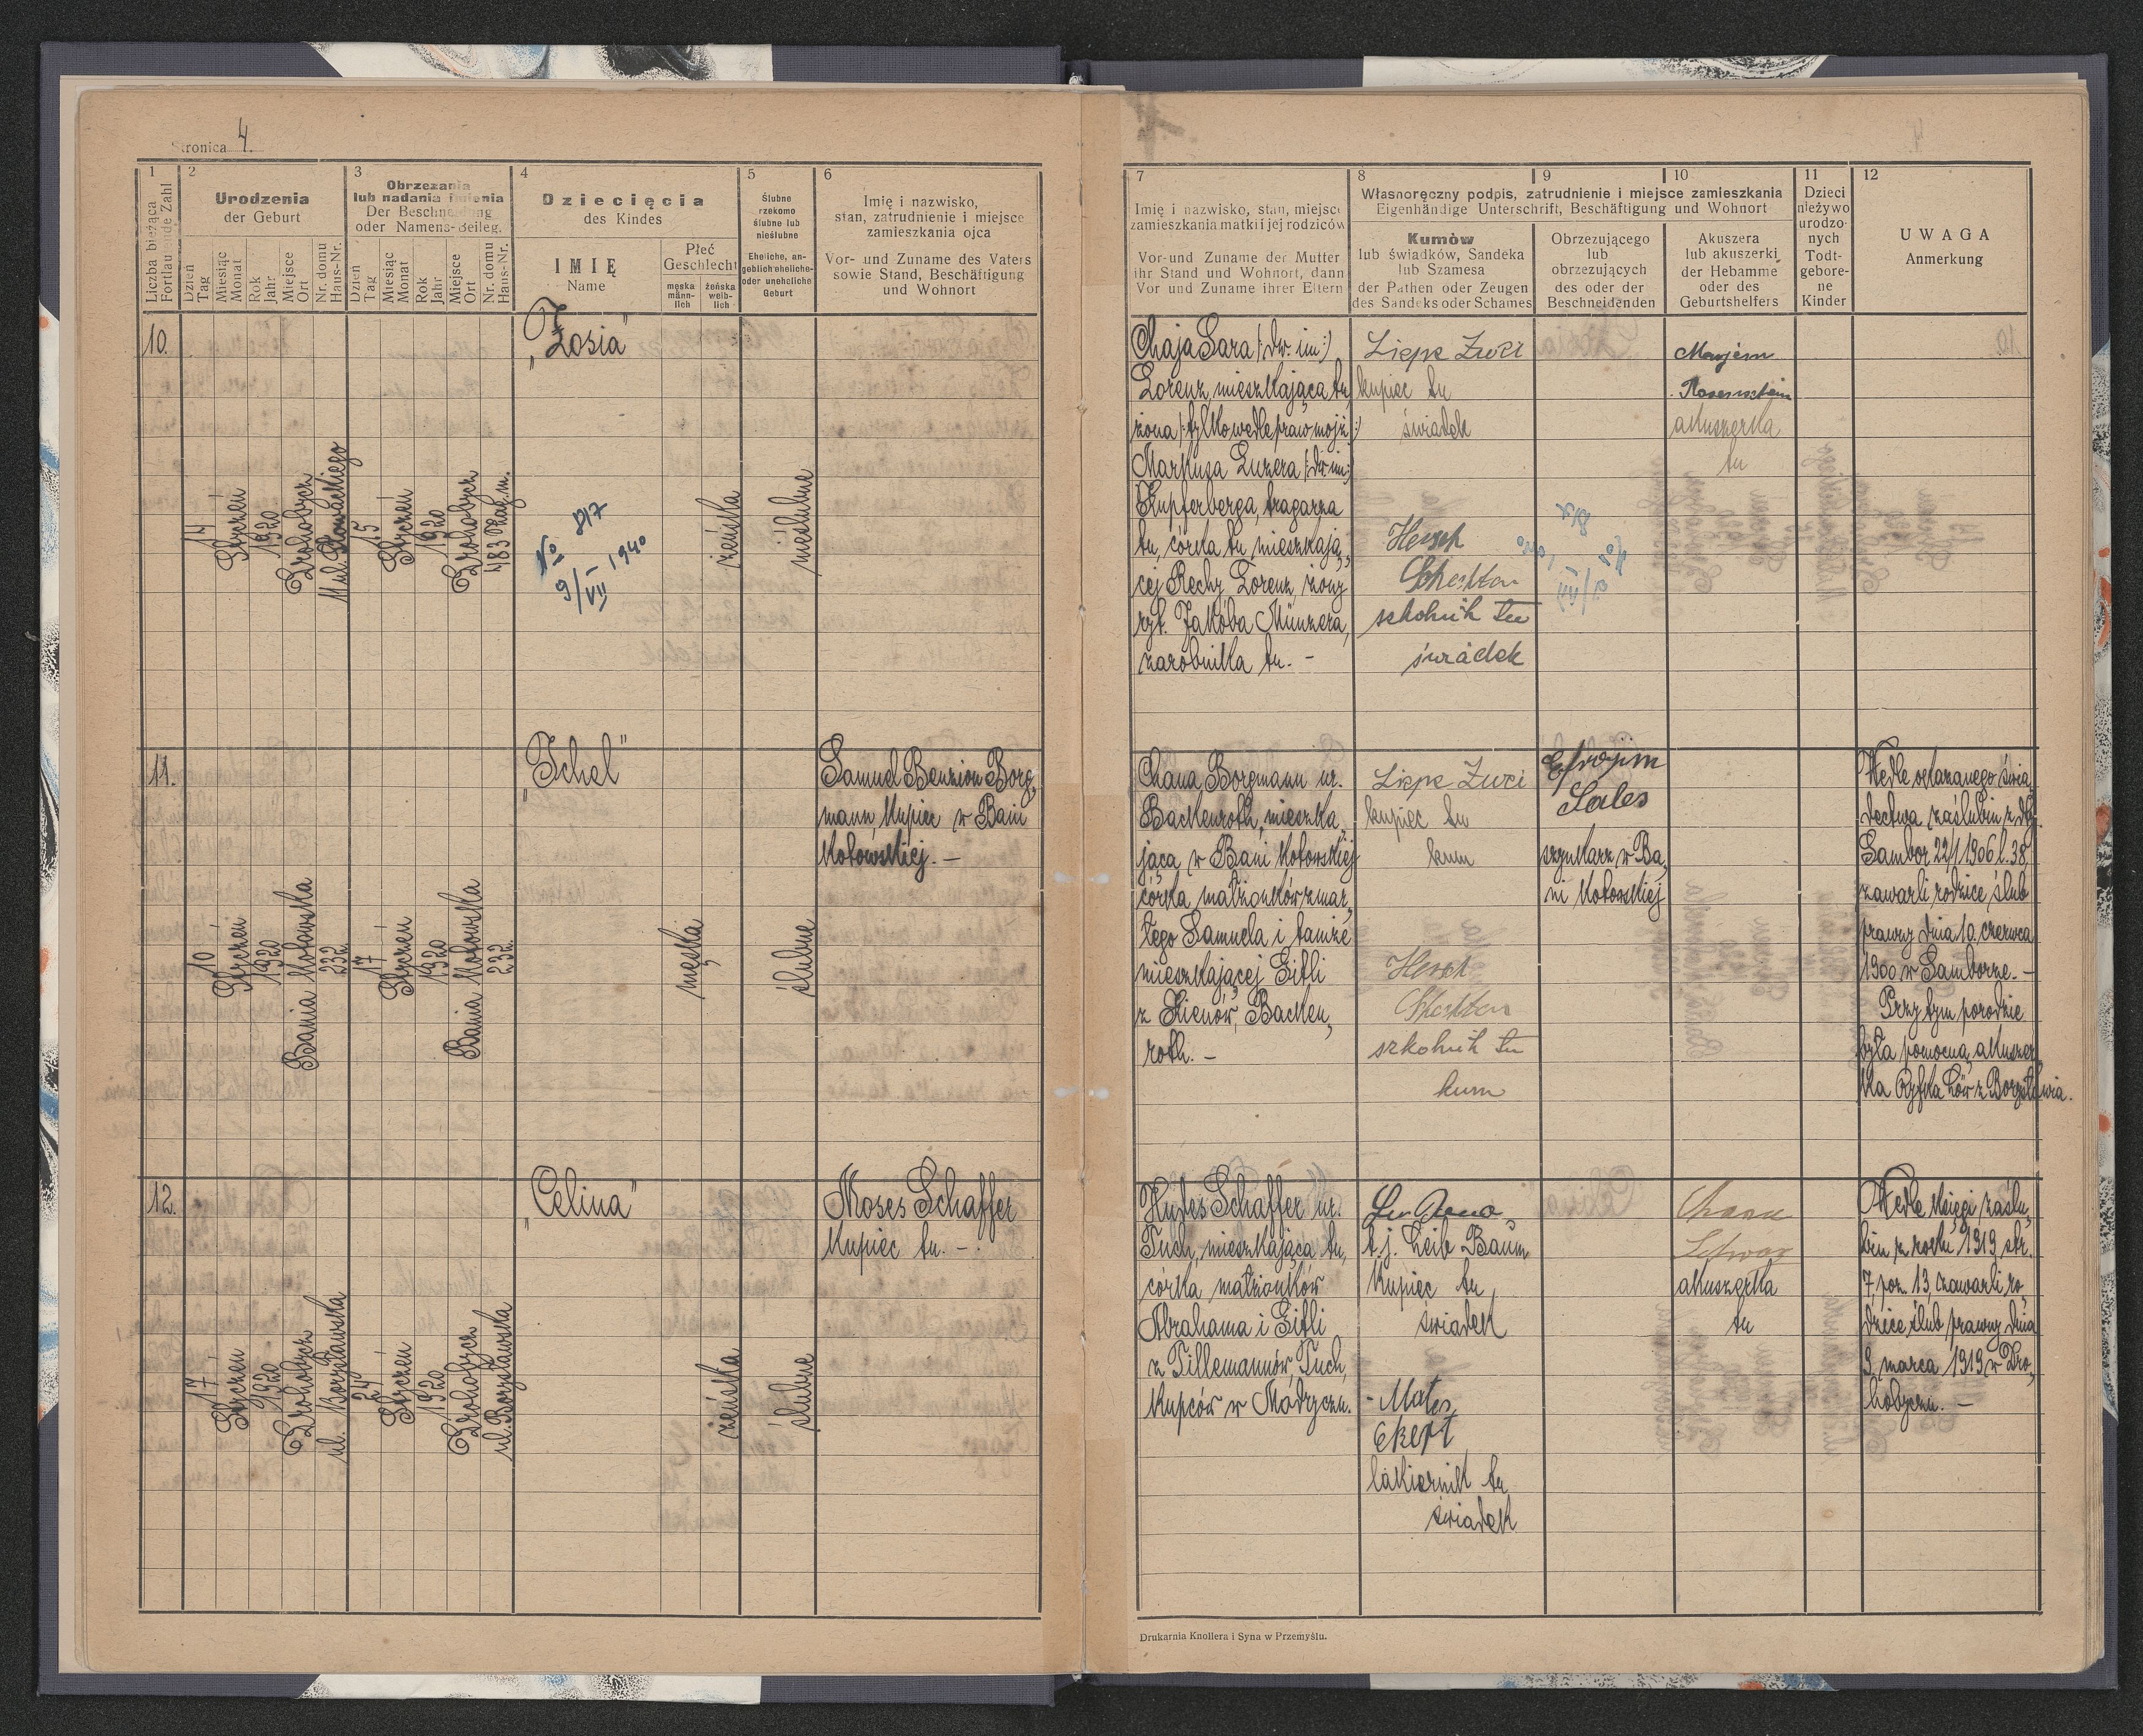 Stronica 4.
1
Liczba bieżąca
Fortlaufende Zahl
2
Urodzenia
der Geburt
Dzień
Tag
Miesiąc
Monat
Rok
Jahr
Miejsce
Ort
Nr. domu
Haus-Nr.
3
Obrzezania
lub nadania imienia
Der Beschneidung
oder Namens-Beileg.
Dzień
Tag
Miesiąc
Monat
Rok
Jahr
Miejsce
Ort
Nr. domu
Haus-Nr.
4
Dziecięcia
des Kindes
IMIĘ
Name
Płeć
Geschlecht
męska
männ-
lich
żeńska
weib-
lich
5
Ślubne
rzekomo
ślubne lub
nieślubne
Eheliche, an-
geblich eheliche-
oder uneheliche
Geburt
6
Imię i nazwisko,
stan, zatrudnienie i miejsce
zamieszkania ojca
Vor- und Zuname des Vaters
sowie Stand, Beschäftigung
und Wohnort
7
Imię i nazwisko, stan, miejsce
zamieszkania matki i jej rodziców
Vor-und Zuname der Mutter
ihr Stand und Wohnort, dann
Vor und Zuname ihrer Eltern
8
9
10
Własnoręczny podpis, zatrudnienie i miejsce zamieszkania
Eigenhändige Unterschrift, Beschäftigung und Wohnort
Kumów
lub świadków, Sandeka
lub Szamesa
der Pathen oder Zeugen
des Sandeks oder Schames
Obrzezującego
lub
obrzezujących
des oder der
Beschneidenden
Akuszera
lub akuszerki
der Hebamme
oder des
Geburtshelfers
11
Dzieci
nieżywo
urodzo-
nych
Todt-
gebore-
ne
Kinder
12
UWAGA
Anmerkung
10.
14
Styczeń
1920
Drohobycz
ul. Słowackiego
15
Styczeń
1920
Drohobycz
483 Zag. m.
„Zosia"
No 817
9/VII 1940
żeńska
nieślubne
Chaja Sara /: dw. im :/
Lorenz, mieszkająca tu,
żona /: tylko wedle praw mojż :/
Markusa Luzera /: dw. im :/
Kupferberga, tragarza
tu, córka tu mieszkają„
cej Rechy Lorenz, żony
ryt. Jakóba Münzera,
zarobnika tu. –
Lippe Zwei
kupiec tu
świadek
Hersch
Schechter
szkolnik tu
świadek
Marjem
Rosenstein
akuszerka
tu
11.
10
Styczeń
1920
Bania Kotowska
232.
17
Styczeń
1920
Bania Kotowska
232.
„Ichel"
męska
ślubne
Samuel Benzion Borg„
mann, kupiec w Bani
Kotowskiej. –
Chana Borgmann ur.
Backenroth, mieszka„
jąca w Bani Kotowskiej
córka małżonków zmar„
łego Samuela i tamże
mieszkającej Gitli
z Kienów, Backen„
roth. –
Lippe Zwei
kupiec tu
kum
Hersch
Schechter
szkolnik tu
kum
Efroim
Sales
szynkarz w Ba„
ni Kotowskiej
Wedle okazanego świa„
dectwa zaślubin z dty.
Sambor 22/1 1906 l. 38,
zawarli rodzice ślub
prawny dnia 10 czerwca
1900 w Samborze. –
Przy tym porodzie
była pomocną akuszer„
ka Ryfka Löw z Borysławia.
12.
17
Styczeń
1920
Drohobycz
ul. Borysławska
24
Styczeń
1920
Drohobycz
ul. Borysławska
„Celina"
żeńska
ślubne
Moses Schaffer
kupiec tu. –
Hudes Schaffer ur.
Tuch, mieszkająca tu,
córka małżonków
Abrahama i Gitli
z Tillemannów, Tuch,
kupców w Modryczu.
t. j. Leib Baum
kupiec tu
świadek
- Mates
Ekert
lakiernik tu
świadek
Chana
akuszerka
tu
Wedle księgi zaślu„
bin z roku 1919, str.
7, poz. 13, zawarli ro„
dzice ślub prawny dnia
9. marca 1919 w Dro„
hobyczu. –
Drukarnia Knollera i Syna w Przemyślu.